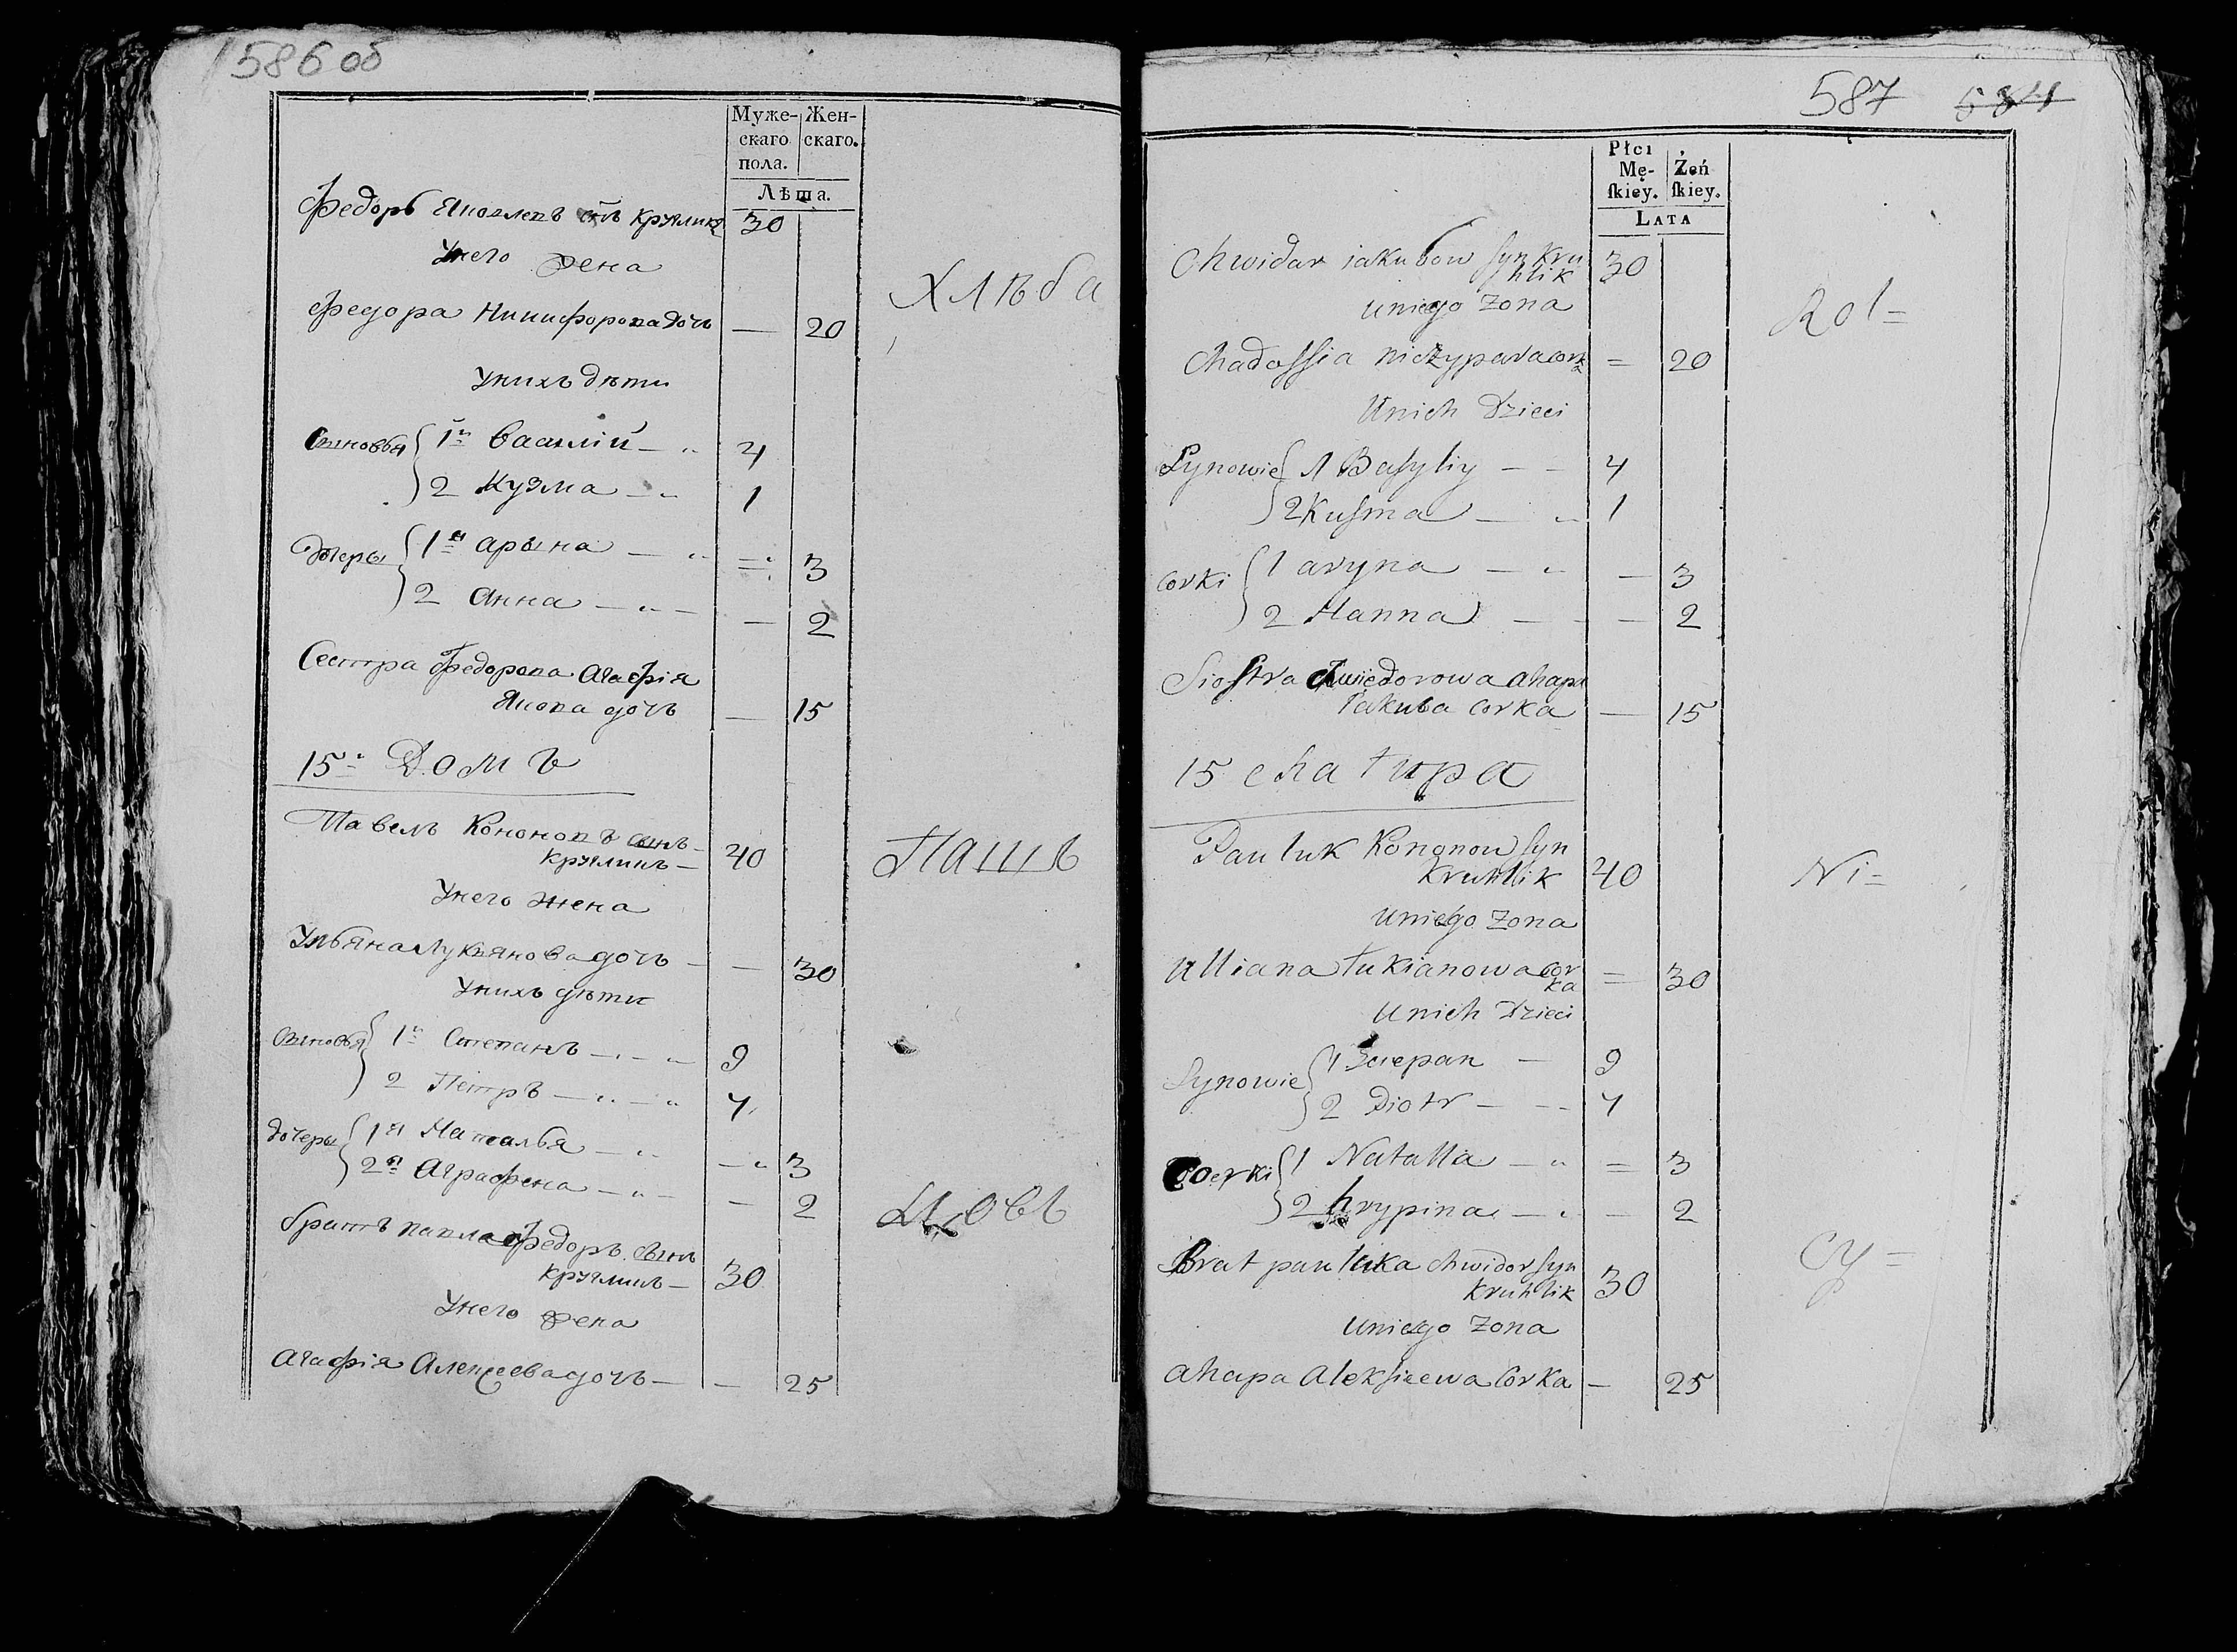 586 об
Муже-
скаго
пола.
Жен-
скаго.
Лѣта.
Федоръ Яковлевъ снъ Кругликъ 30
Унего жена
Федора Никифорова дочь — 20
Унихъ дѣти
Сыновья 1й Василій — 4
2 Кузма — 1
Дочеры 1я Арына — 3
2 Анна — — 2
Сестра Федорова Агафія
Якова дочь — 15
15й Домъ
Павелъ Кононовъ сынъ
Кругликъ — 40
Унего жена
Ульяна Лукьянова дочь — — 30
Унихъ дѣти
Сыновья 1й Степанъ — 9
2 Петръ — 7
Дочеры 1я Наталья — 3
2я Аграфена — — 2
братъ павла Федоръ сынъ
Кругликъ — 30
Унего жена
Агафія Алексеева дочь — — 25
Хлѣба
Пашъ
Цовъ
587 584
Płci
Mę-
ſkiey.
Żeń
ſkiey.
LATA
Chwidar iakubow ſyn Kru
hlik 30
uniego Zona
Chadoſſia niczyparacork
a = 20
Unich Dzieci
Synowie 1 Baſyliy — — 4
2 Kuſma — 1
corki 1 aryna — — 3
2 Hanna — — 2
Sioſtra Chwiedorowa ahapa
Jakuba corka — 15
15 chałupa
Pauluk Kononow ſyn
Kruhlik 40
uniego Zona
Ulliana łukianowa cor
ka = 30
unich Dzieci
Synowie 1 Sciepan — 9
2 Piotr — — 7
Coerki 1 Natalla — = 3
2 hrypina — — 2
Brat pauluka chwidor ſyn
Kruhlik 30
uniego Zona
ahapa Alekſieewa Corka — 25
Rol=
Ni=
cy=